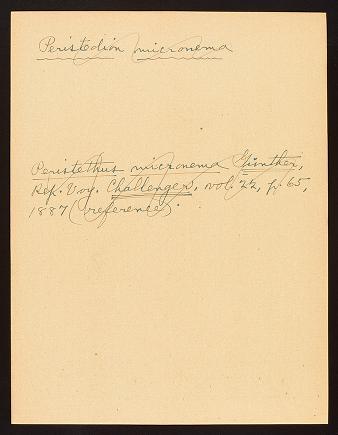 Peristedion micronema
Peristethus micronema Günther,
Rep. Voy. Challenger, vol. 22, p. 65,
1887 (reference).